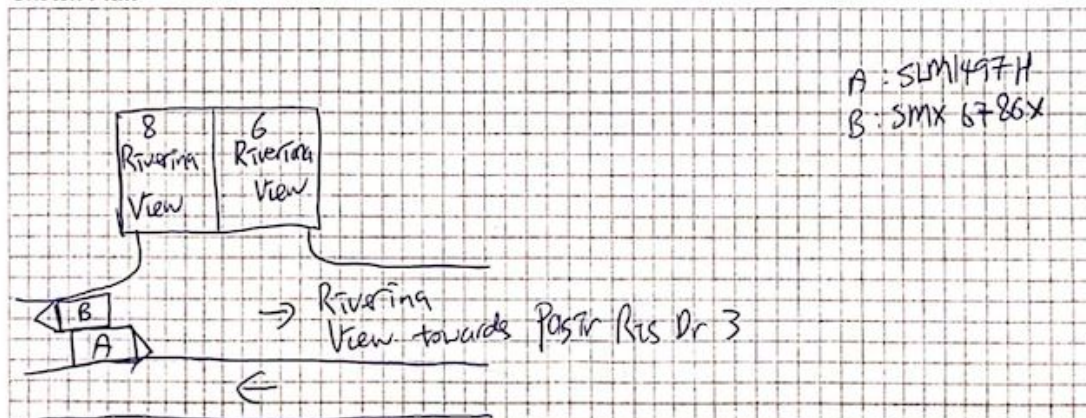 A : SLM1497H
B : SMX 6786X
8
Riverina
View
6
Riverina
View
B
A
→ Riverina
View towards Pasir Ris Dr 3
←